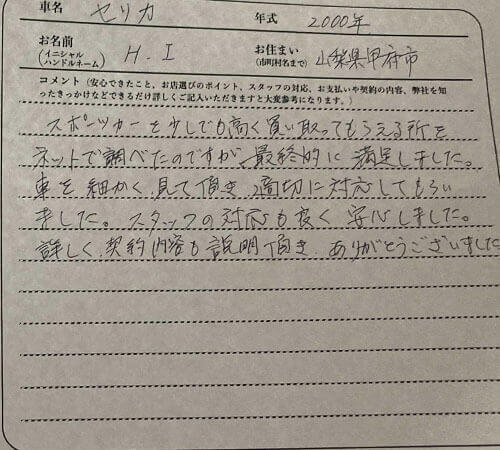 車名 セリカ 年式 2000年
お名前 H.I お住まい 山梨県甲府市
(イニシャル
ハンドルネーム) (市町村名まで)
コメント(安心できたこと、お店選びのポイント、スタッフの対応、お支払いや契約の内容、弊社を知
ったきっかけなどできるだけ詳しくご記入いただきますと大変参考になります。)
スポーツカーを少しでも高く買い取ってもらえる所を
ネットで調べたのですが、最終的に満足しました。
車を細かく見て頂き適切に対応してもらい
ました。スタッフの対応も良く安心しました。
詳しく契約内容も説明頂き、ありがとうございました